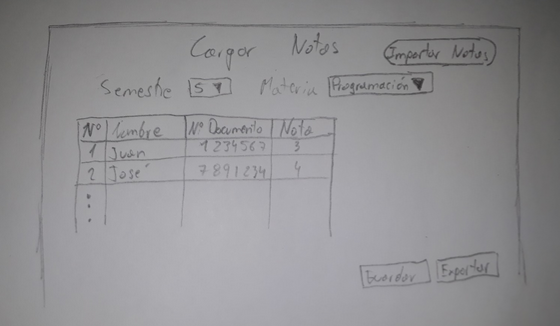 Cargar Notas
Importar Notas
Semestre 5 Materia Programación
Nº Nombre Nº Documento Nota
1 Juan 1234567 3
2 José 7891234 4
Guardar Exportar